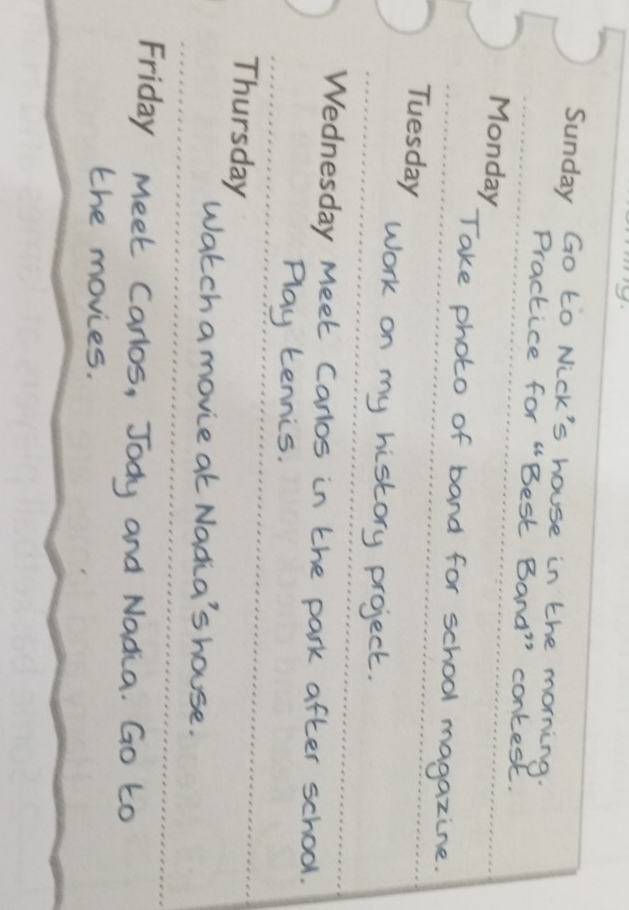 Sunday Go to Nick's house in the morning.
Practice for "Best Band" contest.
Monday
Take photo of band for school magazine.
Tuesday
Work on my history project.
Wednesday Meet Carlos in the park after school.
Play tennis.
Thursday
Watch a movie at Nadia's house.
Friday Meet Carlos, Jody and Nadia. Go to
the movies.